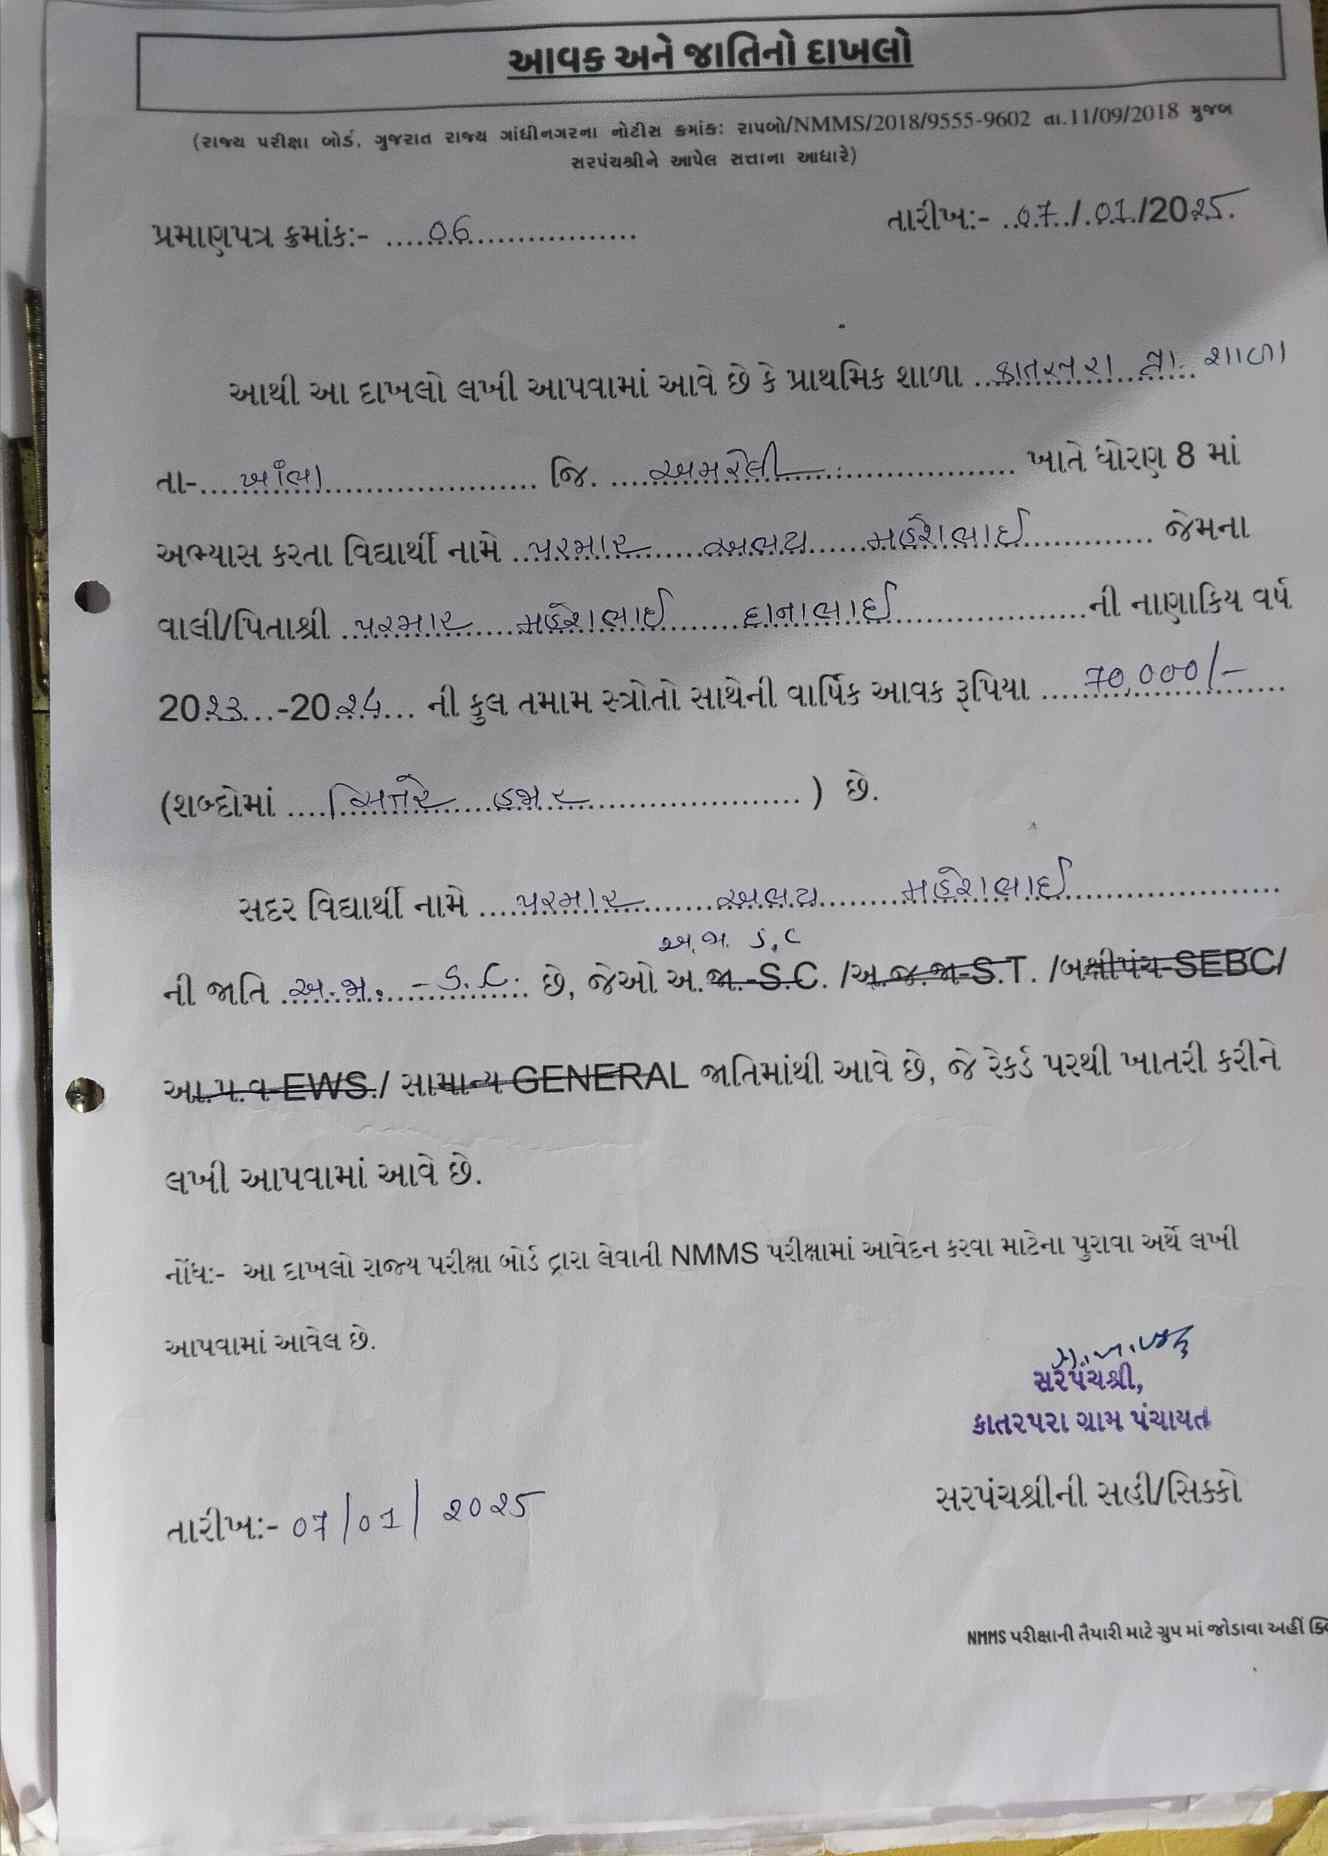 આવક અને જાતિનો દાખલો
(રાજ્ય પરીક્ષા બોર્ડ, ગુજરાત રાજ્ય ગાંધીનગરના નોટીસ ક્રમાંક: રાપબો/NMMS/2018/9555-9602 તા.11/09/2018 મુજબ
સરપંચશ્રીને આપેલ સત્તાના આધારે)
પ્રમાણપત્ર ક્રમાંક:- ....06.................... તારીખ:- ..07../..01./2025.
આથી આ દાખલો લખી આપવામાં આવે છે કે પ્રાથમિક શાળા તા. શાળા
તા-....ખાંભા.................... જિ. ....અમરેલી.................... ખાતે ધોરણ 8 માં
અભ્યાસ કરતા વિદ્યાર્થી નામે ..પરમાર....અભય....મહેશભાઈ............ જેમના
વાલી/પિતાશ્રી ..પરમાર....મહેશભાઈ....દાનાભાઈ....................ની નાણાકિય વર્ષ
20૨૩...-20૨૪... ની કુલ તમામ સ્ત્રોતો સાથેની વાર્ષિક આવક રૂપિયા ....70,000/-
(શબ્દોમાં ....સિત્તેર....હજાર.................... ) છે.
સદર વિદ્યાર્થી નામે ....પરમાર....અભય....મહેશભાઈ....................
અ.જા. S.C
ની જાતિ ..અ.જા. - S.C. છે, જેઓ અ.જા.-S.C. /અ.જ.જા-S.T. /બક્ષીપંચ-SEBC/
આ.પ.વ-EWS./ સામાન્ય GENERAL જાતિમાંથી આવે છે, જે રેકર્ડ પરથી ખાતરી કરીને
લખી આપવામાં આવે છે.
નોંધ:- આ દાખલો રાજ્ય પરીક્ષા બોર્ડ દ્વારા લેવાતી NMMS પરીક્ષામાં આવેદન કરવા માટેના પુરાવા અર્થે લખી
આપવામાં આવેલ છે.
સરપંચશ્રી,
કાતરપરા ગ્રામ પંચાયત
સરપંચશ્રીની સહી/સિક્કો
તારીખ:- 07/01/2025
NMMS પરીક્ષાની તૈયારી માટે ગ્રુપ માં જોડાવા અહીં